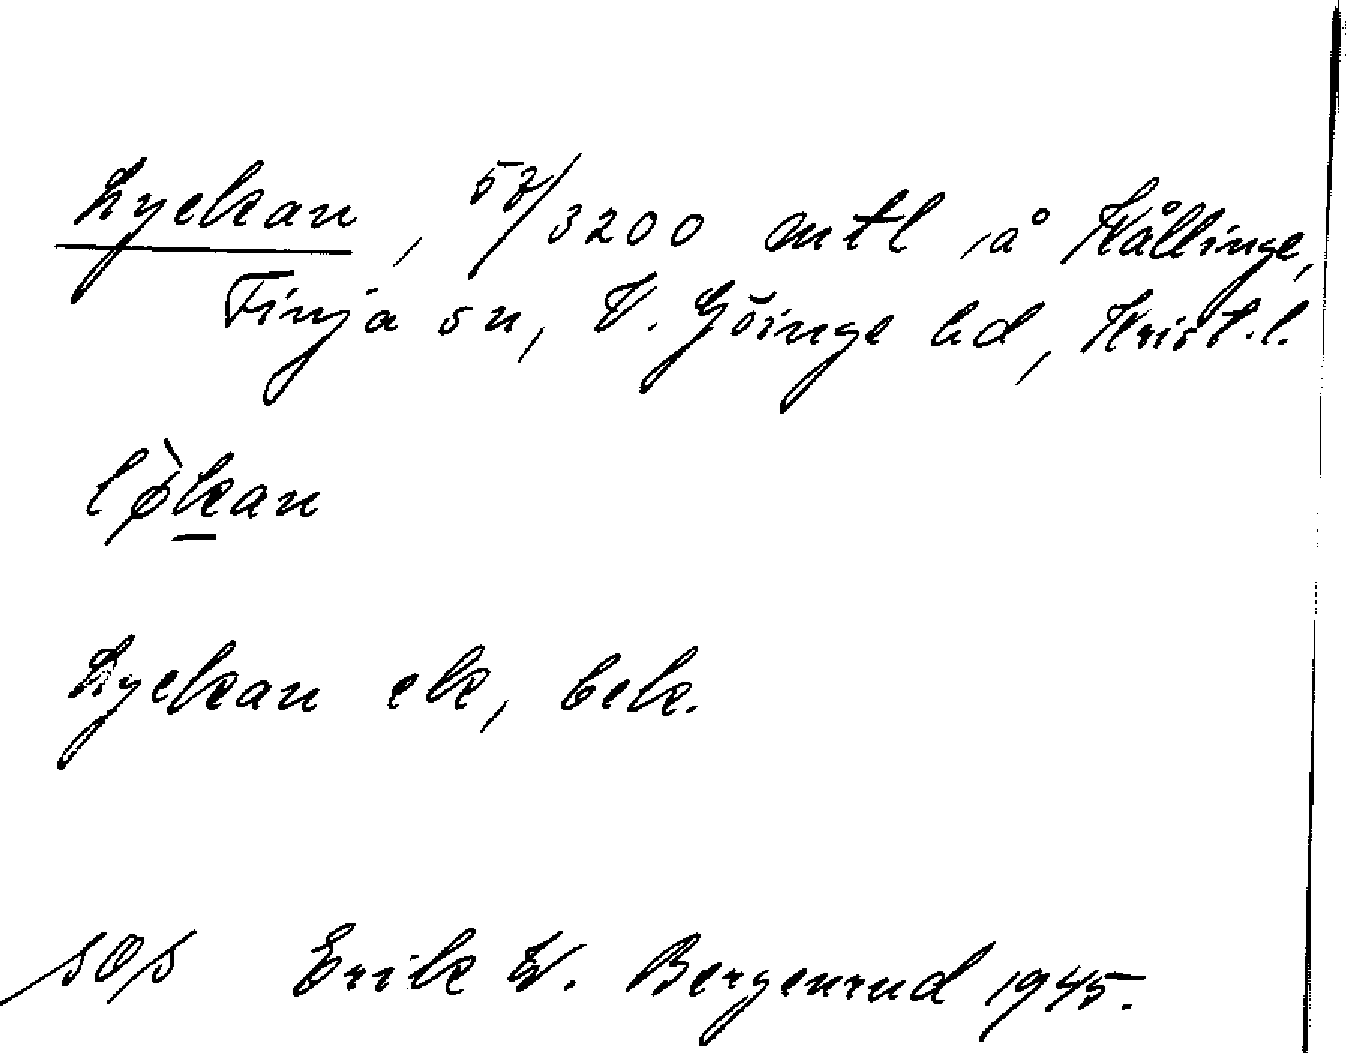 Lyckan, 57/3200 mtl å Hållinge,
Finja sn, V. Göinge hd, Krist.l.
lø̀kan
Lyckan ek, bek.
SOS Erik W. Bergenrud 1945.